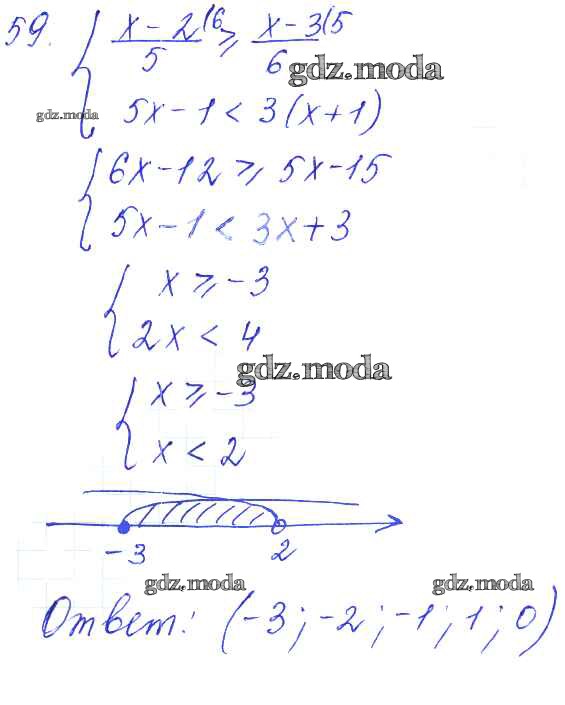 59. { (x-2)/5 (6 ≥ (x-3)/6 (5
gdz.moda
5x-1 < 3(x+1)
gdz.moda
{ 6x-12 ≥ 5x-15
5x-1 < 3x+3
{ x ≥ -3
2x < 4
gdz.moda
{ x ≥ -3
x < 2
-3 2
gdz.moda gdz.moda
Ответ: (-3; -2; -1; 1; 0)